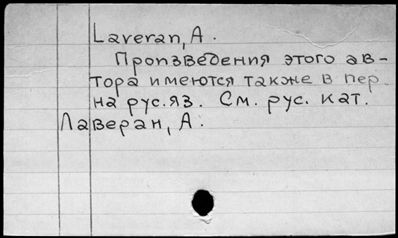 Laveran, A.
Произведения этого ав-
тора имеются также в пер.
на рус. яз. См. рус. кат.
Лаверан, А.